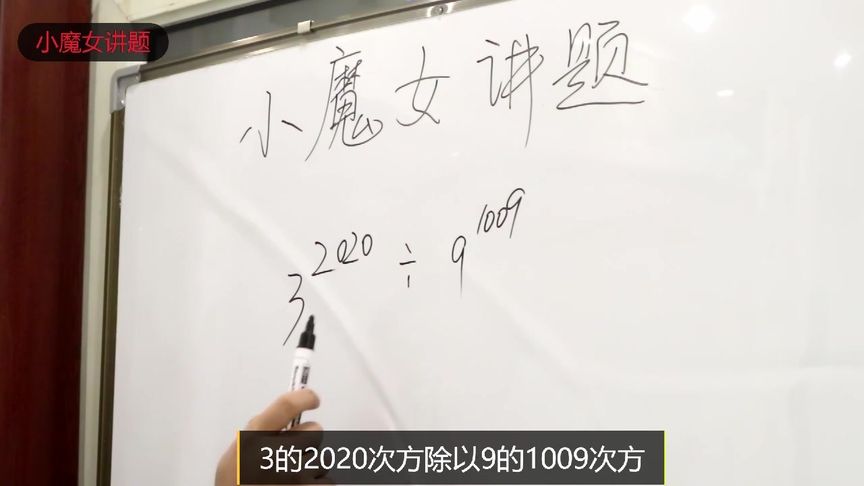 小魔女讲题
小魔女讲题
3²⁰²⁰ ÷ 9¹⁰⁰⁹
3的2020次方除以9的1009次方